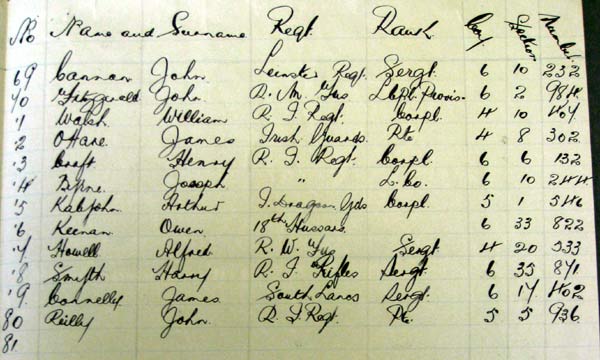 No Name and Surname Regt. Rank Coy Section Number
69 Cannon John Leinster Regt. Sergt. 6 10 232
70 Fitzgerald John R. M. Fus L Cpl Provis. 6 2 984
'1 Walsh William R. I. Regt. Corpl 4 10 404
'2 O'Hare James Irish Guards. Pte 4 8 302
'3 Croft Henry R. I. Regt. Corpl 6 6 132
'4 Byrne Joseph " L. Co. 6 10 244
'5 Arthur I. Dragoon Gds Corpl 5 1 546
'6 Keenan Owen 18th Hussars. 6 33 822
'7 Howell Alfred R. W. Fus Sergt 4 20 533
'8 Smyth Harry R. I. Rifles Sergt. 6 35 871
'9 Connelly James South Lancs Sergt. 6 17 402
80 Reilly John R. I. Regt. Pte. 5 5 936
81